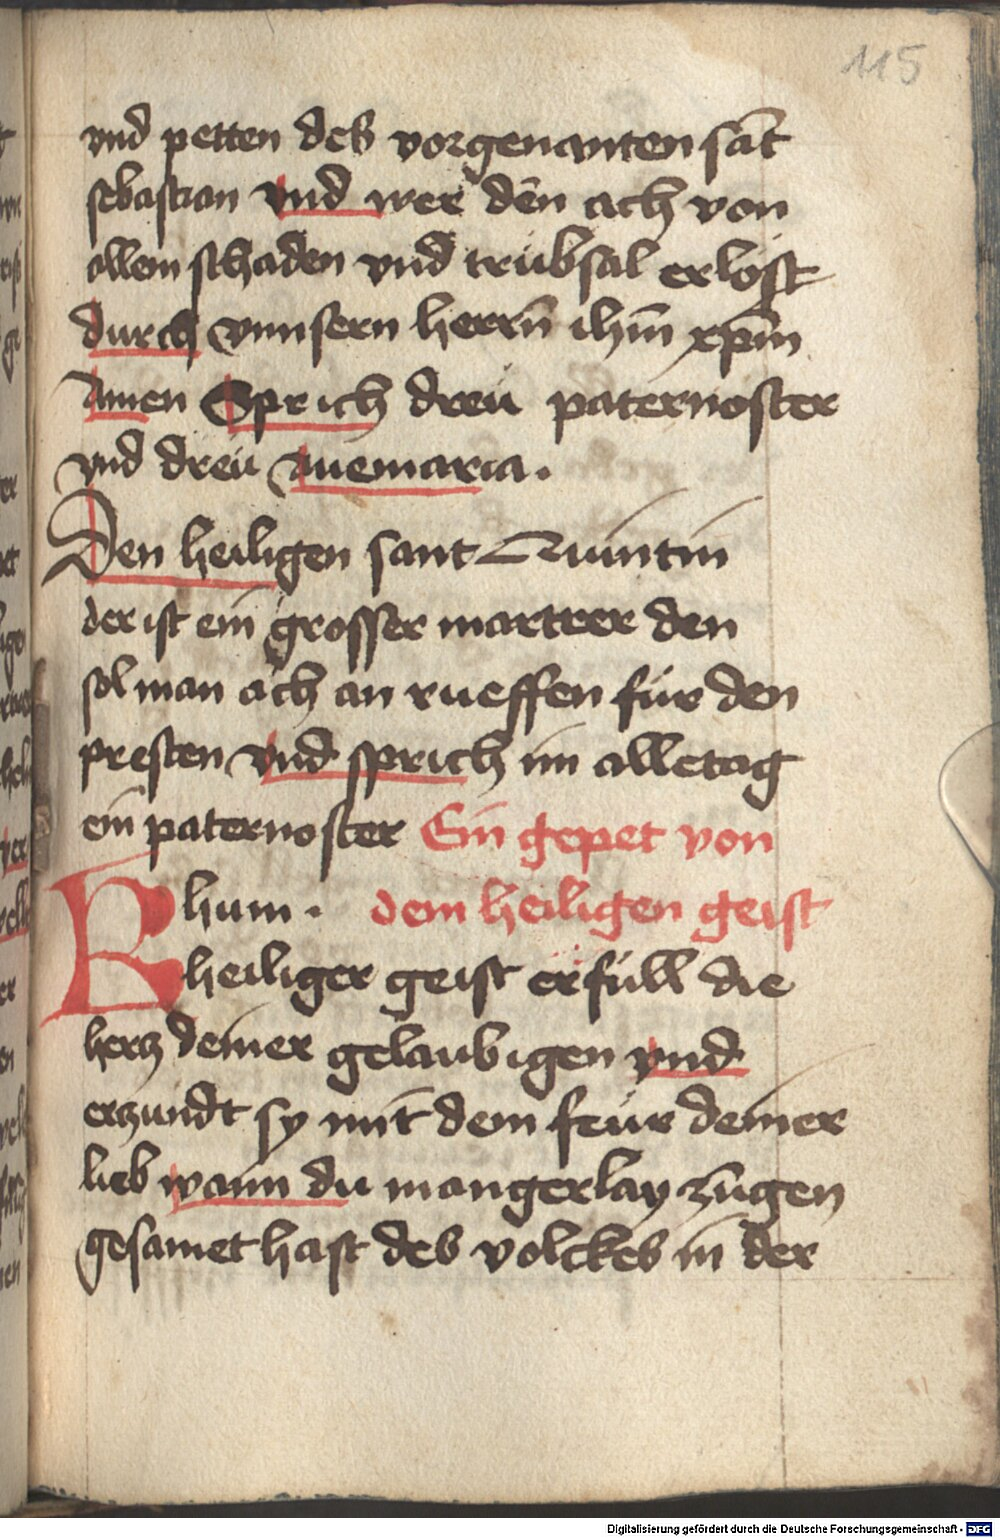 115
vnd petten des vorgenanten sāt
sebastian vnd wer den ach von
allem schaden vnd trübsal erlost
durch vnnsern herrn̄ ihm̄ xp̄m
Amen Sprich dreü paternoster
vnd dreü Auemaria.
Den heiligen sant Quintin
der ist ein grosser martrer den
sol man ach an rueffen für den
presten vnd sprich im alletag
ein paternoster Ein gepet von
Khum. dem heiligen geist
heiliger geist erfüll die
hercz deiner gelaubigen vnd
erzundt sy mit dem feür deiner
lieb wann du mangerlay zungen
gesamet hast des volckes in der
Digitalisierung gefördert durch die Deutsche Forschungsgemeinschaft - DFG